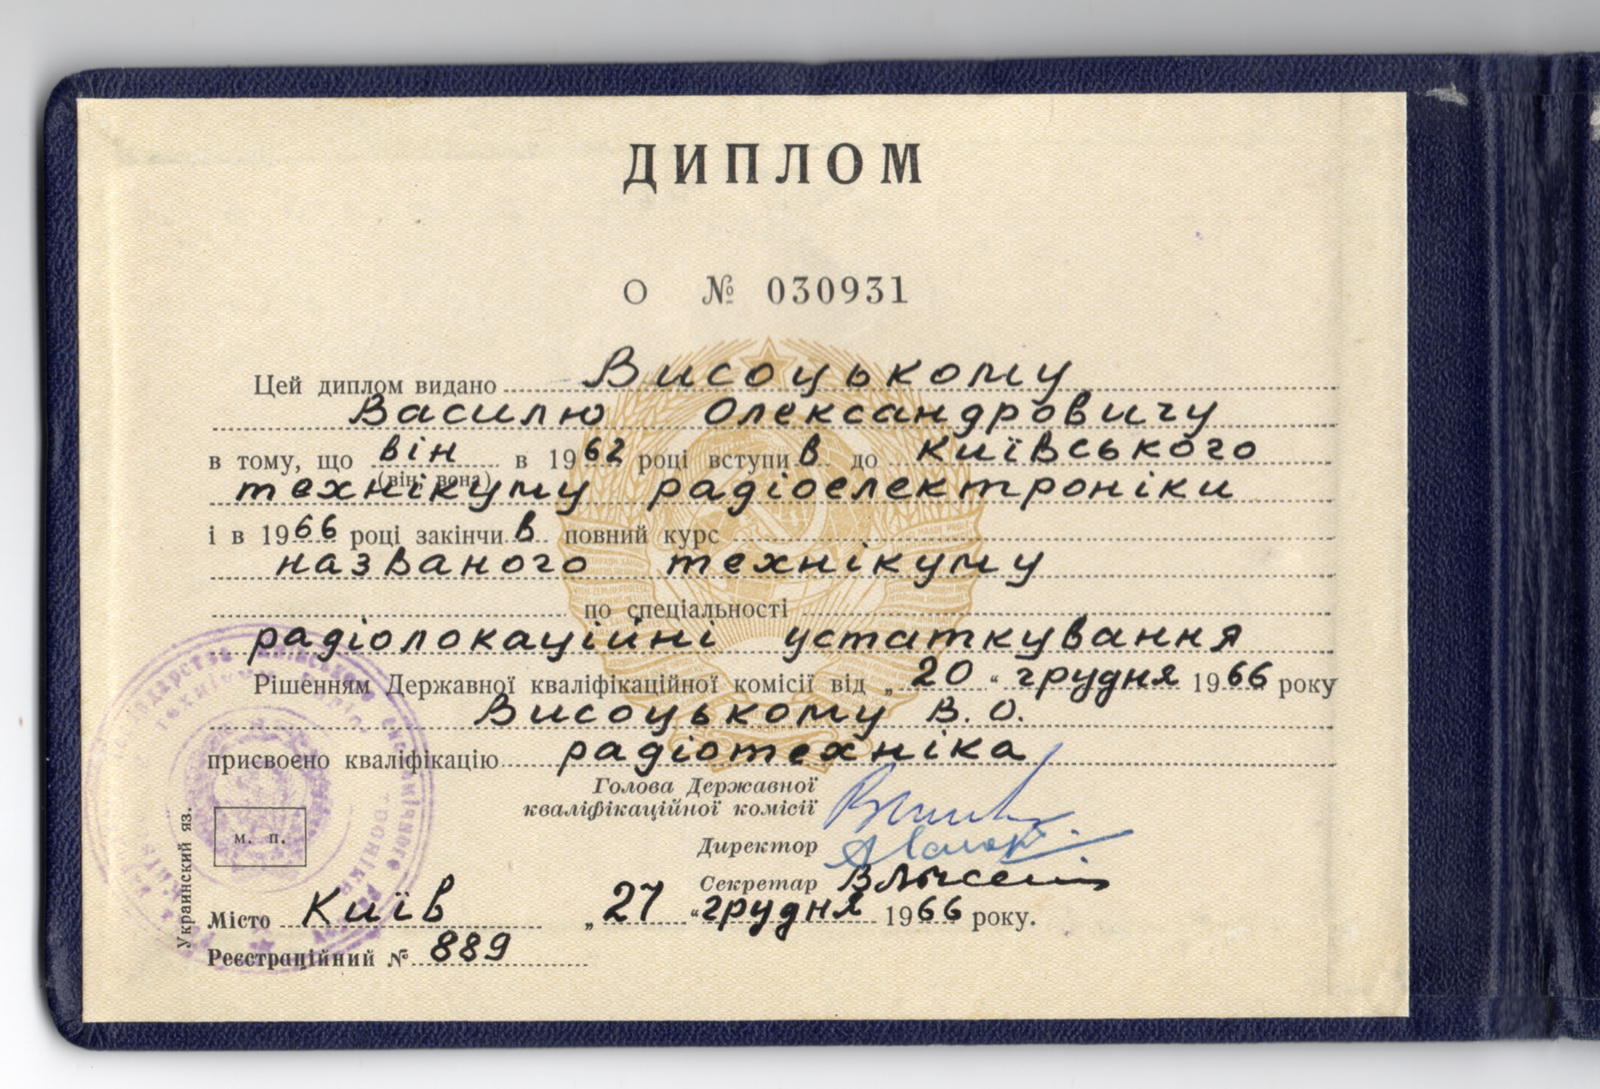 ДИПЛОМ
О № 030931
Цей диплом видано Височькому
Василю Олександровичу
в тому, що він в 1962 році вступив до Київського
(він, вона)
технікуму радіоелектроніки
і в 1966 році закінчив повний курс
названого технікуму
по спеціальності
радіолокаційні устаткування
Рішенням Державної кваліфікаційної комісії від „20“ грудня 1966 року
Височькому В. О.
присвоєно кваліфікацію радіотехніка
Голова Державної
кваліфікаційної комісії
Директор
Секретар
Украинский яз.
м. п.
Місто Київ „27“ грудня 1966 року.
Реєстраційний № 889